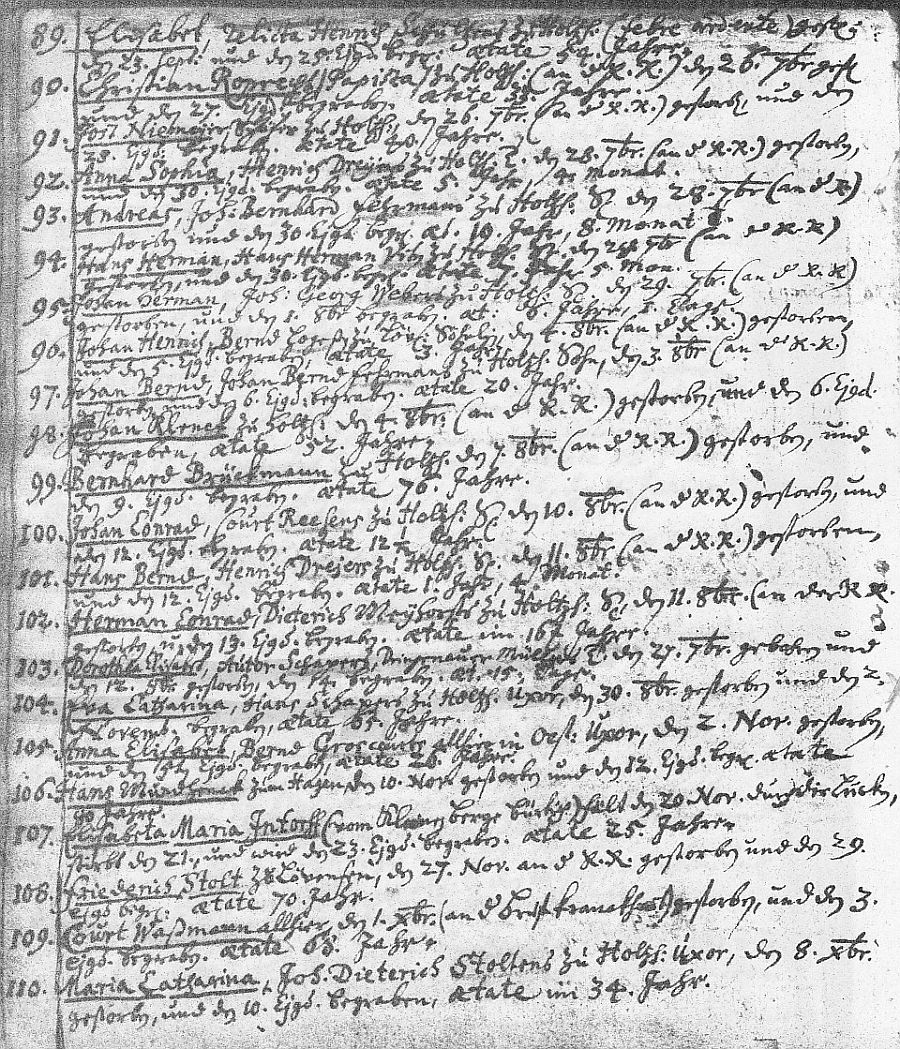 89. Elisabet, relicta Henrich zu Holtzh. (febre ardente) gest:
den 23. Sept: und den 25. Ejgd. begr. ætate Jahre.
90. Christian Roprecht (Papista) zu Holtzh: (an d R. R.) den 26. 7br gest
und den 27. Ejgd begraben. ætate 38. Jahre.
91. Jost Niemeier zu Holtzh; den 26. 7br. (an d R. R.) gestorb, und den
28. Ejgd. begraben. ætate 40. Jahre.
92. Anna Sophia, Henrich Dreiers zu Holtzh. T. den 28. 7br. (an d R. R.) gestorben,
und den 30. Ejgd. begraben. ætate 5. Jahr, 4. Monat.
93. Andreas, Joh: Bernhard Fehrmans zu Holtzh: S. den 28. 7br (an d R R)
gestorben und den 30. Ejgd. begr. æt. 10. Jahr, 8. Monat
94. Hans Herman, Hans Herman zu Holtzh: S. den 7br (an d R. R)
gestorben, und den 30. Ejgd. begr. ætate 7. Jahr 5. Mon.
95. Johan Herman, Joh: Georg Webers zu Holtzh: S. den 29. 7br. (an d R. R)
gestorben, und den 1. 8br begraben. æt: 6. Jahre, 3. Tage.
96. Johan Henrich, Bernd zu Löv: Sohn, den 4. 8br. (an d R. R.) gestorben,
und den 5. Ejgd. begraben, ætate 3. Jahr.
97. Johan Bernd, Johan Bernd Fehrmans zu Holtzh. Sohn, den 3. 8br (an d R. R.)
gestorben und den 6. Ejgd. begraben. ætate 20. Jahr.
98. Johan Klenck zu Holtzh: den 4. 8br. (an d R. R.) gestorben, und den 6. Ejgd.
begraben, ætate 52. Jahre.
99. Bernhard Brückmann zu Holtzh. den 7. 8br. (an d R. R.) gestorben, und
den 9. Ejgd. begraben. ætate 76. Jahre.
100. Johan Conrad, Court Reesens zu Holtzh: S. den 10. 8br. (an d R. R.) gestorben, und
den 12. Ejgd. begraben. ætate 12 Jahre.
101. Hans Bernd, Henrich Dreiers zu Holtzh: S. den 11. 8br (an d R. R.) gestorben,
und den 12. Ejgd. begraben. ætate 1. Jahr, 4. Monat.
102. Herman Conrad, Dieterich Meyhorsts zu Holtzh: S. den 11. 8br. (an der R R.
gestorben, u. den 13. Ejgd. begraben. ætate im 16 Jahre.
103. Dorothea Elisabet, Autor Schapers, T. den 27. 7br. gebohren und
den 12. 8br gestorben, den 14. begraben. æt. 15. Tage.
104. Eva Catharina, Hans Schapers zu Holtzh. Uxor, den 30. 8br. gestorben und den 2.
Novemb, begraben, ætate 65. Jahre.
105. Anna Elisabet, Bernd allhier in Oest: Uxor, den 2. Nov. gestorben,
und den Ejgd. begraben, ætate 26. Jahre.
106. Hans zum Hagen, den 10. Nov. gestorben und den 12. Ejgd. begr. ætate
90 Jahre.
107. Elisabeta Maria Intorff (vom berge bürtig) fält den 20 Nov. durch die Lucken,
stirbt den 21, und wird den 23. Ejgd. begraben. ætate 25. Jahre.
108. Friederich Stolt zu Lövensen, den 27. Nov. an d R. R. gestorben und den 29.
Ejgd begr: ætate 70. Jahr.
109. Court Waßmann allhier, den 1. Xbr. (an d Brust krankheit) gestorben, und den 3.
Ejgd. begraben. ætate 68. Jahr.
110. Maria Catharina, Joh. Dieterich Stoltens zu Holtzh: Uxor, den 8. Xbr.
gestorben, und den 10. Ejgd. begraben, ætate im 34. Jahr.